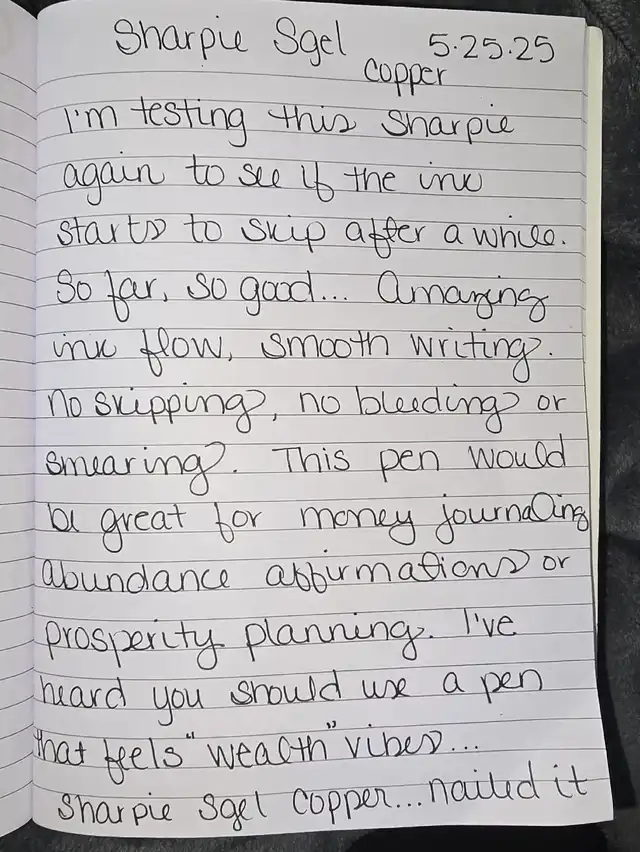 Sharpie Sgel 5.25.25
Copper
I'm testing this Sharpie
again to see if the ink
starts to skip after a while.
So far, so good... Amazing
ink flow, smooth writing.
No skipping, no bleeding or
smearing. This pen would
be great for money journaling
abundance affirmations or
prosperity planning. I've
heard you should use a pen
that feels "wealth" vibes...
Sharpie Sgel Copper... nailed it